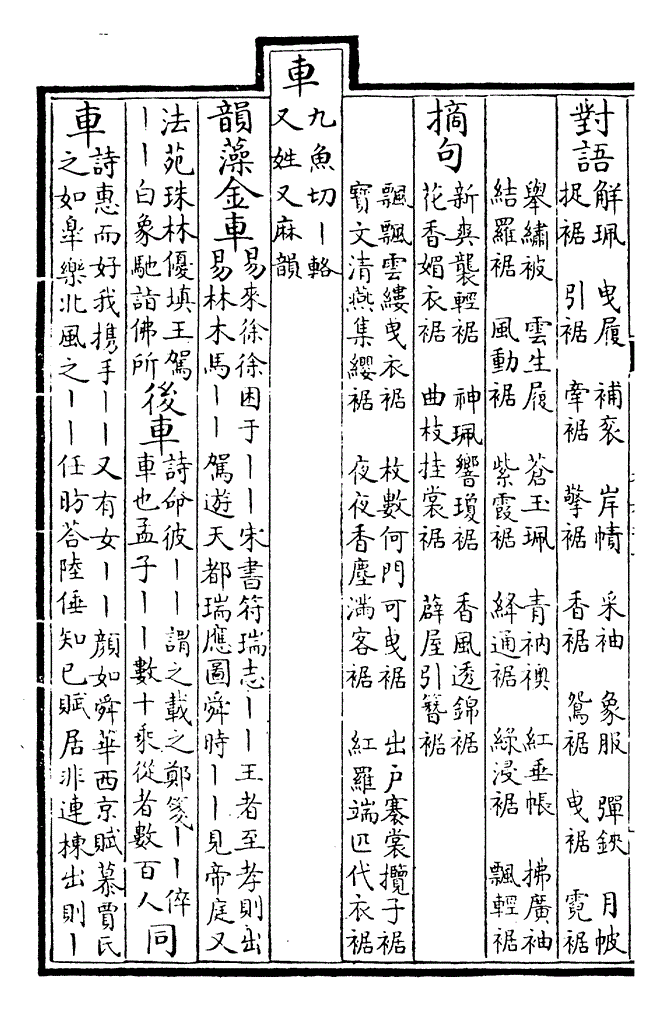 對語
解珮 曳履 補衮 岸幘 采袖 象服 彈鋏 月帔
捉裾 引裾 牽裾 擎裾 香裾 鴛裾 曳裾 霓裾
舉繡被 雲生履 蒼玉珮 青衲襖 紅垂帳 拂廣袖
結羅裾 風動裾 紫霞裾 絳通裾 綠浸裾 飄輕裾
摘句
新爽襲輕裾 神珮響瓊裾 香風透錦裾
花香媚衣裾 曲枝挂裳裾 薜屋引簪裾
飄飄雲縷曳衣裾 枚數何門可曳裾 出戶褰裳攬子裾
寶文清燕集纓裾 夜夜香塵滿客裾 紅羅端匹代衣裾
車
九魚切丨輅
又姓又麻韻
韻藻金車
易來徐徐困于丨丨宋書符瑞志丨丨王者至孝則出
易林木馬丨丨駕遊天都瑞應圖舜時丨丨見帝庭又
法苑珠林優填王駕
丨丨白象馳詣佛所
後車
詩命彼丨丨謂之載之鄭箋丨丨倅
車也孟子丨丨數十乘從者數百人
同
車
詩惠而好我携手丨丨又有女丨丨顔如舜華西京賦慕賈氏
之如臯樂北風之丨丨任昉荅陸倕知已賦居非連棟出則丨